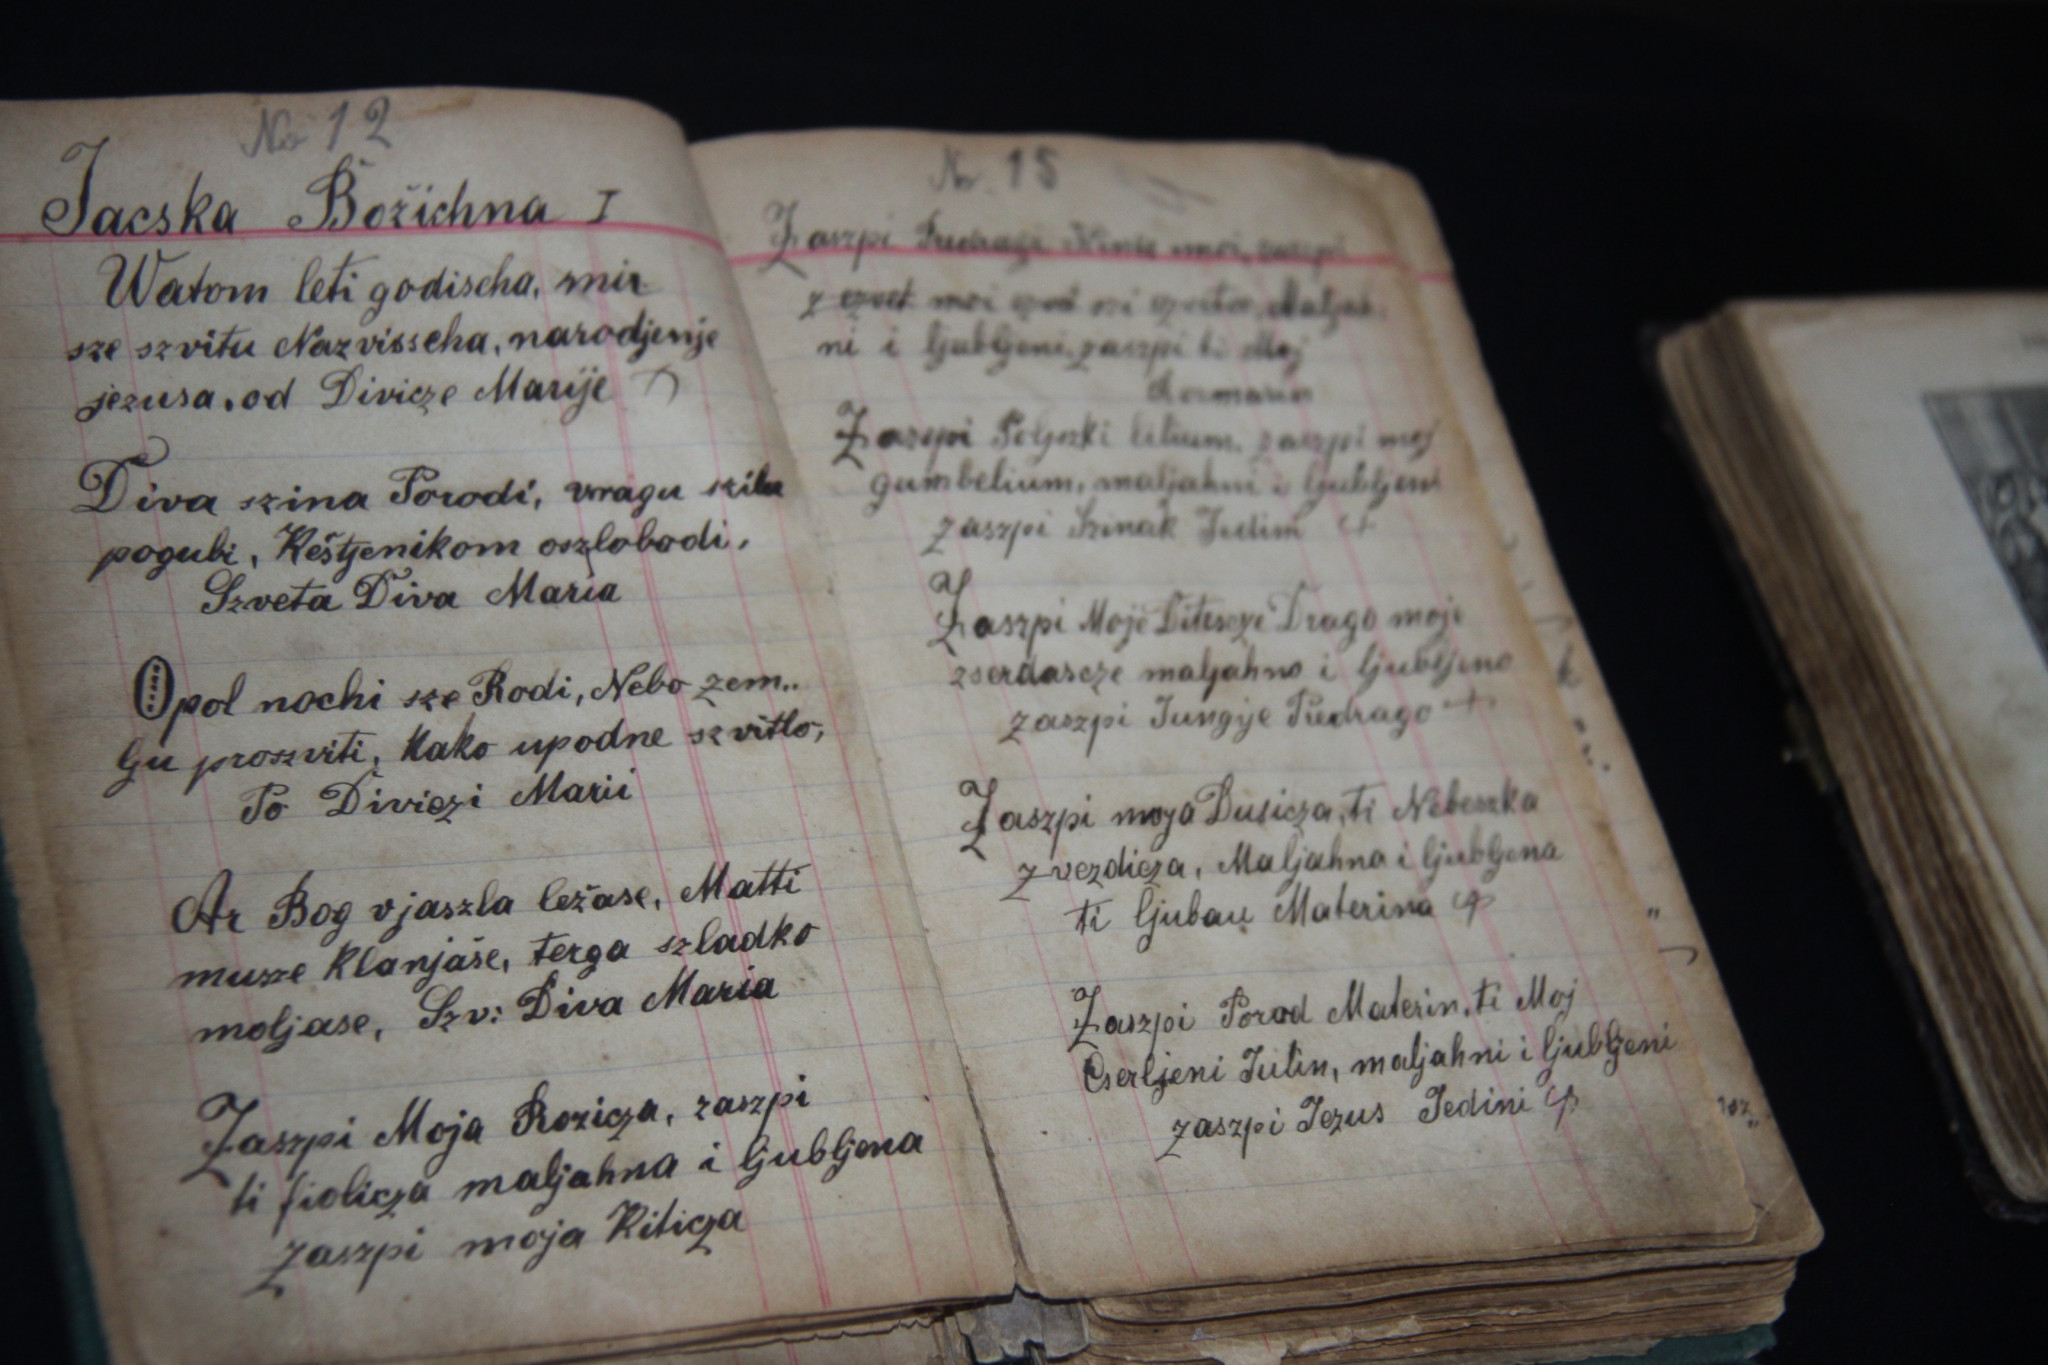 No 12
Jacska Božichna I
Watom leti godischa, mir
sze szvitu Nazvisscha, narodjenje
jezusa. od Divicze Marije
Diva szina Porodi, vragu szilu
pogubi, Keštjenikom oszlobodi,
Szveta Diva Maria
Opol nochi sze Rodi, Nebo zem..
lju proszviti, kako upodne szvitlo,
Po Diviczi Marii
Ar Bog vjaszla ležase, Matti
musze klanjaše, terga szladko
moljase, Szv: Diva Maria
Zaszpi Moja Rozicza, zaszpi
ti fiolicza maljahna i ljubljena
zaszpi moja Kiticza
No 15
Zaszpi Predragi moi, zaszpi
moi
ni i ljubljeni, zaszpi ti Moj
Rozmarin
Zaszpi Poljszki lilium, zaszpi moj
gumbelium, maljahni i ljubljeni
zaszpi Szinak Jedini
Zaszpi Moje Ditescze Drago moje
zserdascze maljahno i ljubljeno
zaszpi Jungije Predrago
Zaszpi moja Dusicza, ti Nebeszka
zvezdicza, Maljahna i ljubljena
ti ljubau Materina
Zaszpi Porod Materin, ti Moj
Cserljeni Tulin, maljahni i ljubljeni
zaszpi Jezus Jedini